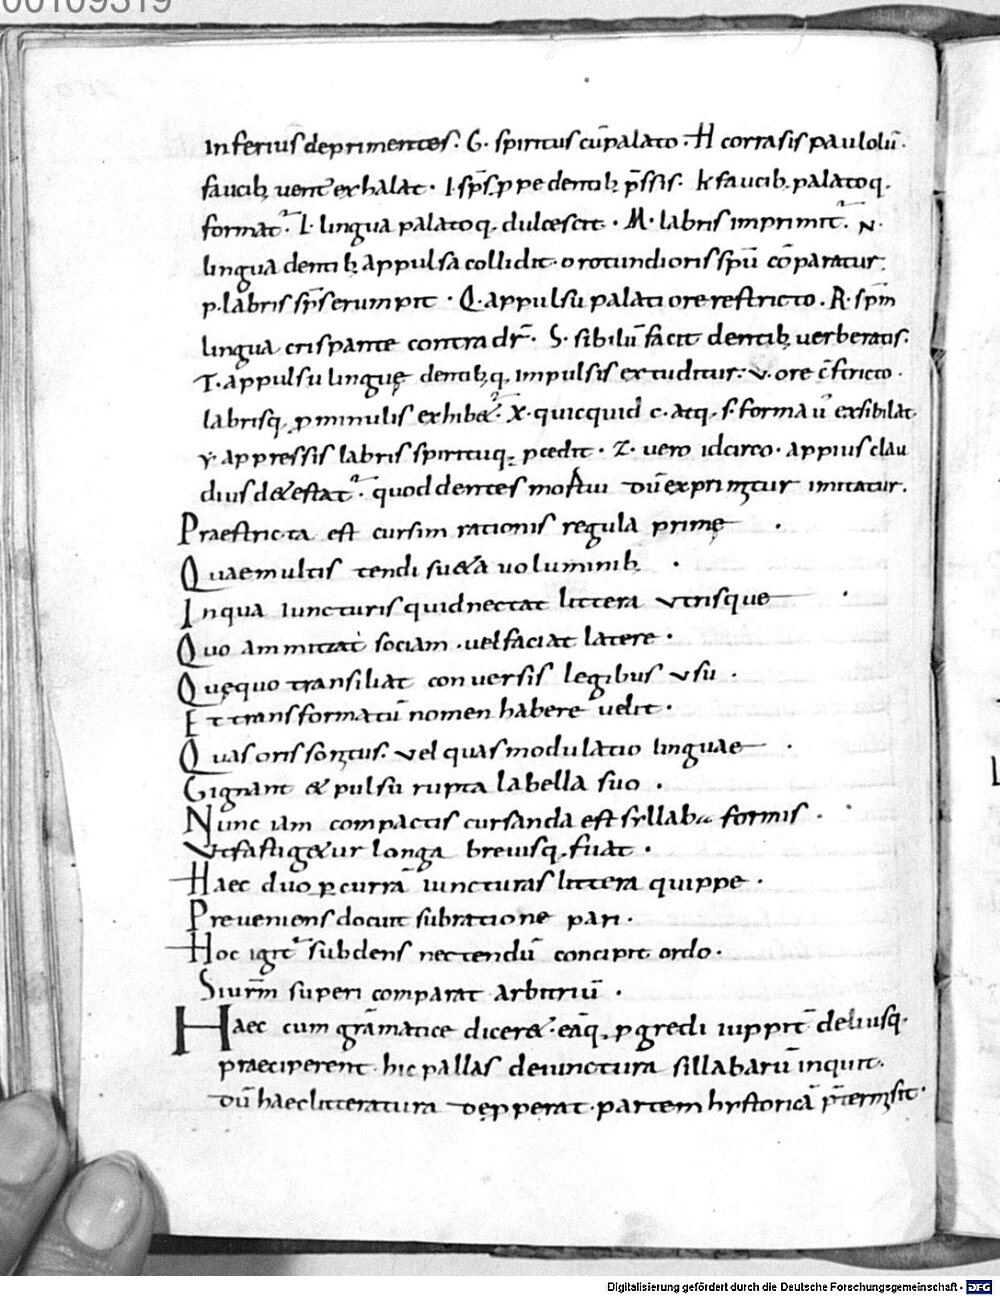 00109319
inferiusdeprimentes. G. spiritus cu̅palato. H corrasis paululu̅.
faucib; vent' exhalat. I.sp̅s.p pe dentib; p̅ssis. K faucib. palatoq.
format'. L. lingua palatoq. dulcescit. M. labris imprimit'. N.
lingua dentib; appulsa collidit. o rotundi oris spu̅ co̅paratur.
p. labris sp̅s erumpit. Q. appulsu palati ore restricto. R. sp̅m
lingua crispante contradr̅. S. sibilu̅ facit dentib; uerberatis.
T. appulsu linguę dentib;q. impulsis extuditur: v. ore c̅stricto.
labrisq. p minulis exhib&'. X. quicquid c. atq. s. forma u̅ exsibilat.
y. appressis labris spirituq; pcedit. Z. uero idcirco. appius clau
dius d&estat'. quod dentes mortui du̅ exprimitur imitatur.
Praestricta est cursim rationis regula primę .
Quae multis tendi su&a uoluminib; .
In qua iuncturis quid nectat littera vtrisque .
Quo ammittat sociam . uel faciat latere .
Quęquo transiliat conuersis legibus vsu .
Et transformatu̅ nomen habere uelit .
Quas oris sonitus. vel quas modulatio linguae .
Gignant & pulsu rupta labella suo .
Nunc iam compactis cursanda est syllaba formis .
Vt fastig&ur longa breuisq. fuat .
Haec duo p̱curra̅ iuncturas littera quippe .
Preueniens docuit sub ratione pari .
Hoc igit̅ subdens nectendu̅ concipit ordo .
Si iur̅m superi comparat arbitriu̅ .
Haec cum gra̅matice dicer&. ea̅q. pgredi iuppit̅ deliusq.
praeciperent. hic pallas de iunctura sillabaru̅ inquit.
du̅ haec litteratura depperat. partem hystorica̅ p̅termisit.
Digitalisierung gefördert durch die Deutsche Forschungsgemeinschaft - DFG